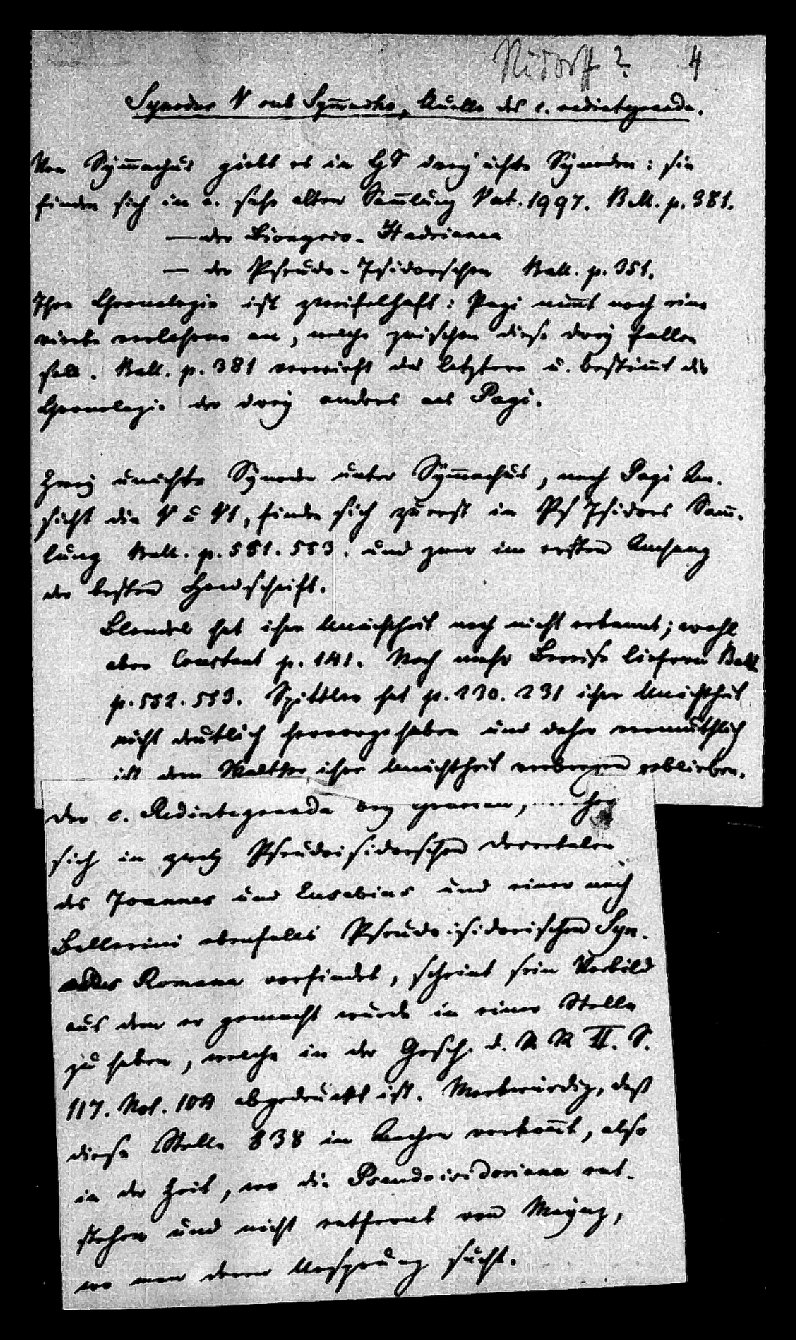 Rudorff? 4
Synodus V sub Symmacho, Quelle des c. redintegranda.
Von Symmachus giebt es in HS drey ächte Synoden: sie
finden sich in e. sehr alten Sammlung Vat. 1997. Ball. p. 381.
— der Dionysio-Hadriana
— der Pseudo-Isidorschen Ball. p. 351.
Ihre Chronologie ist zweifelhaft: Pagi nimmt noch eine
vierte verlohrene an, welche zwischen diese drey fallen
soll. Ball. p. 381 verwirft die letztere u. bestimmt die
Chronologie der drey anders als Pagi.
Zwey unächte Synoden unter Symmachus, nach Pagi An-
sicht die V u VI, finden sich zuerst in Ps Isidors Samm-
lung Ball. p. 551. 553. und zwar im ersten Anhang
der besten Handschrift.
Blondel hat ihre Unächtheit noch nicht erkannt; wohl
aber Constant p. 141. Noch mehr Beweise liefern Ball.
p. 552. 553. Spittler hat p. 230. 231 ihre Unächtheit
nicht deutlich hervorgehoben und daher vermuthlich
ist dem Walther ihre Unächtheit verborgen geblieben.
Der c. Redintegranda bey Gratian,
sich in zwey Pseudoisidorschen Decretalen
des Joannes und Eusebius und einer nach
Ballerini ebenfalls Pseudoisidorischen Syn-
odus Romana vorfindet, scheint sein Vorbild
aus dem er gemacht wurde in einer Stelle
zu haben, welche in der Gesch. d. R R II. S.
117. Not. 10A abgedruckt ist. Merkwürdig, daß
diese Stelle 838 in Aachen vorkommt, also
in der Zeit, wo die Pseudoisidoriana ent-
stehen und nicht entfernt von Maynz,
wo man deren Ursprung sucht.